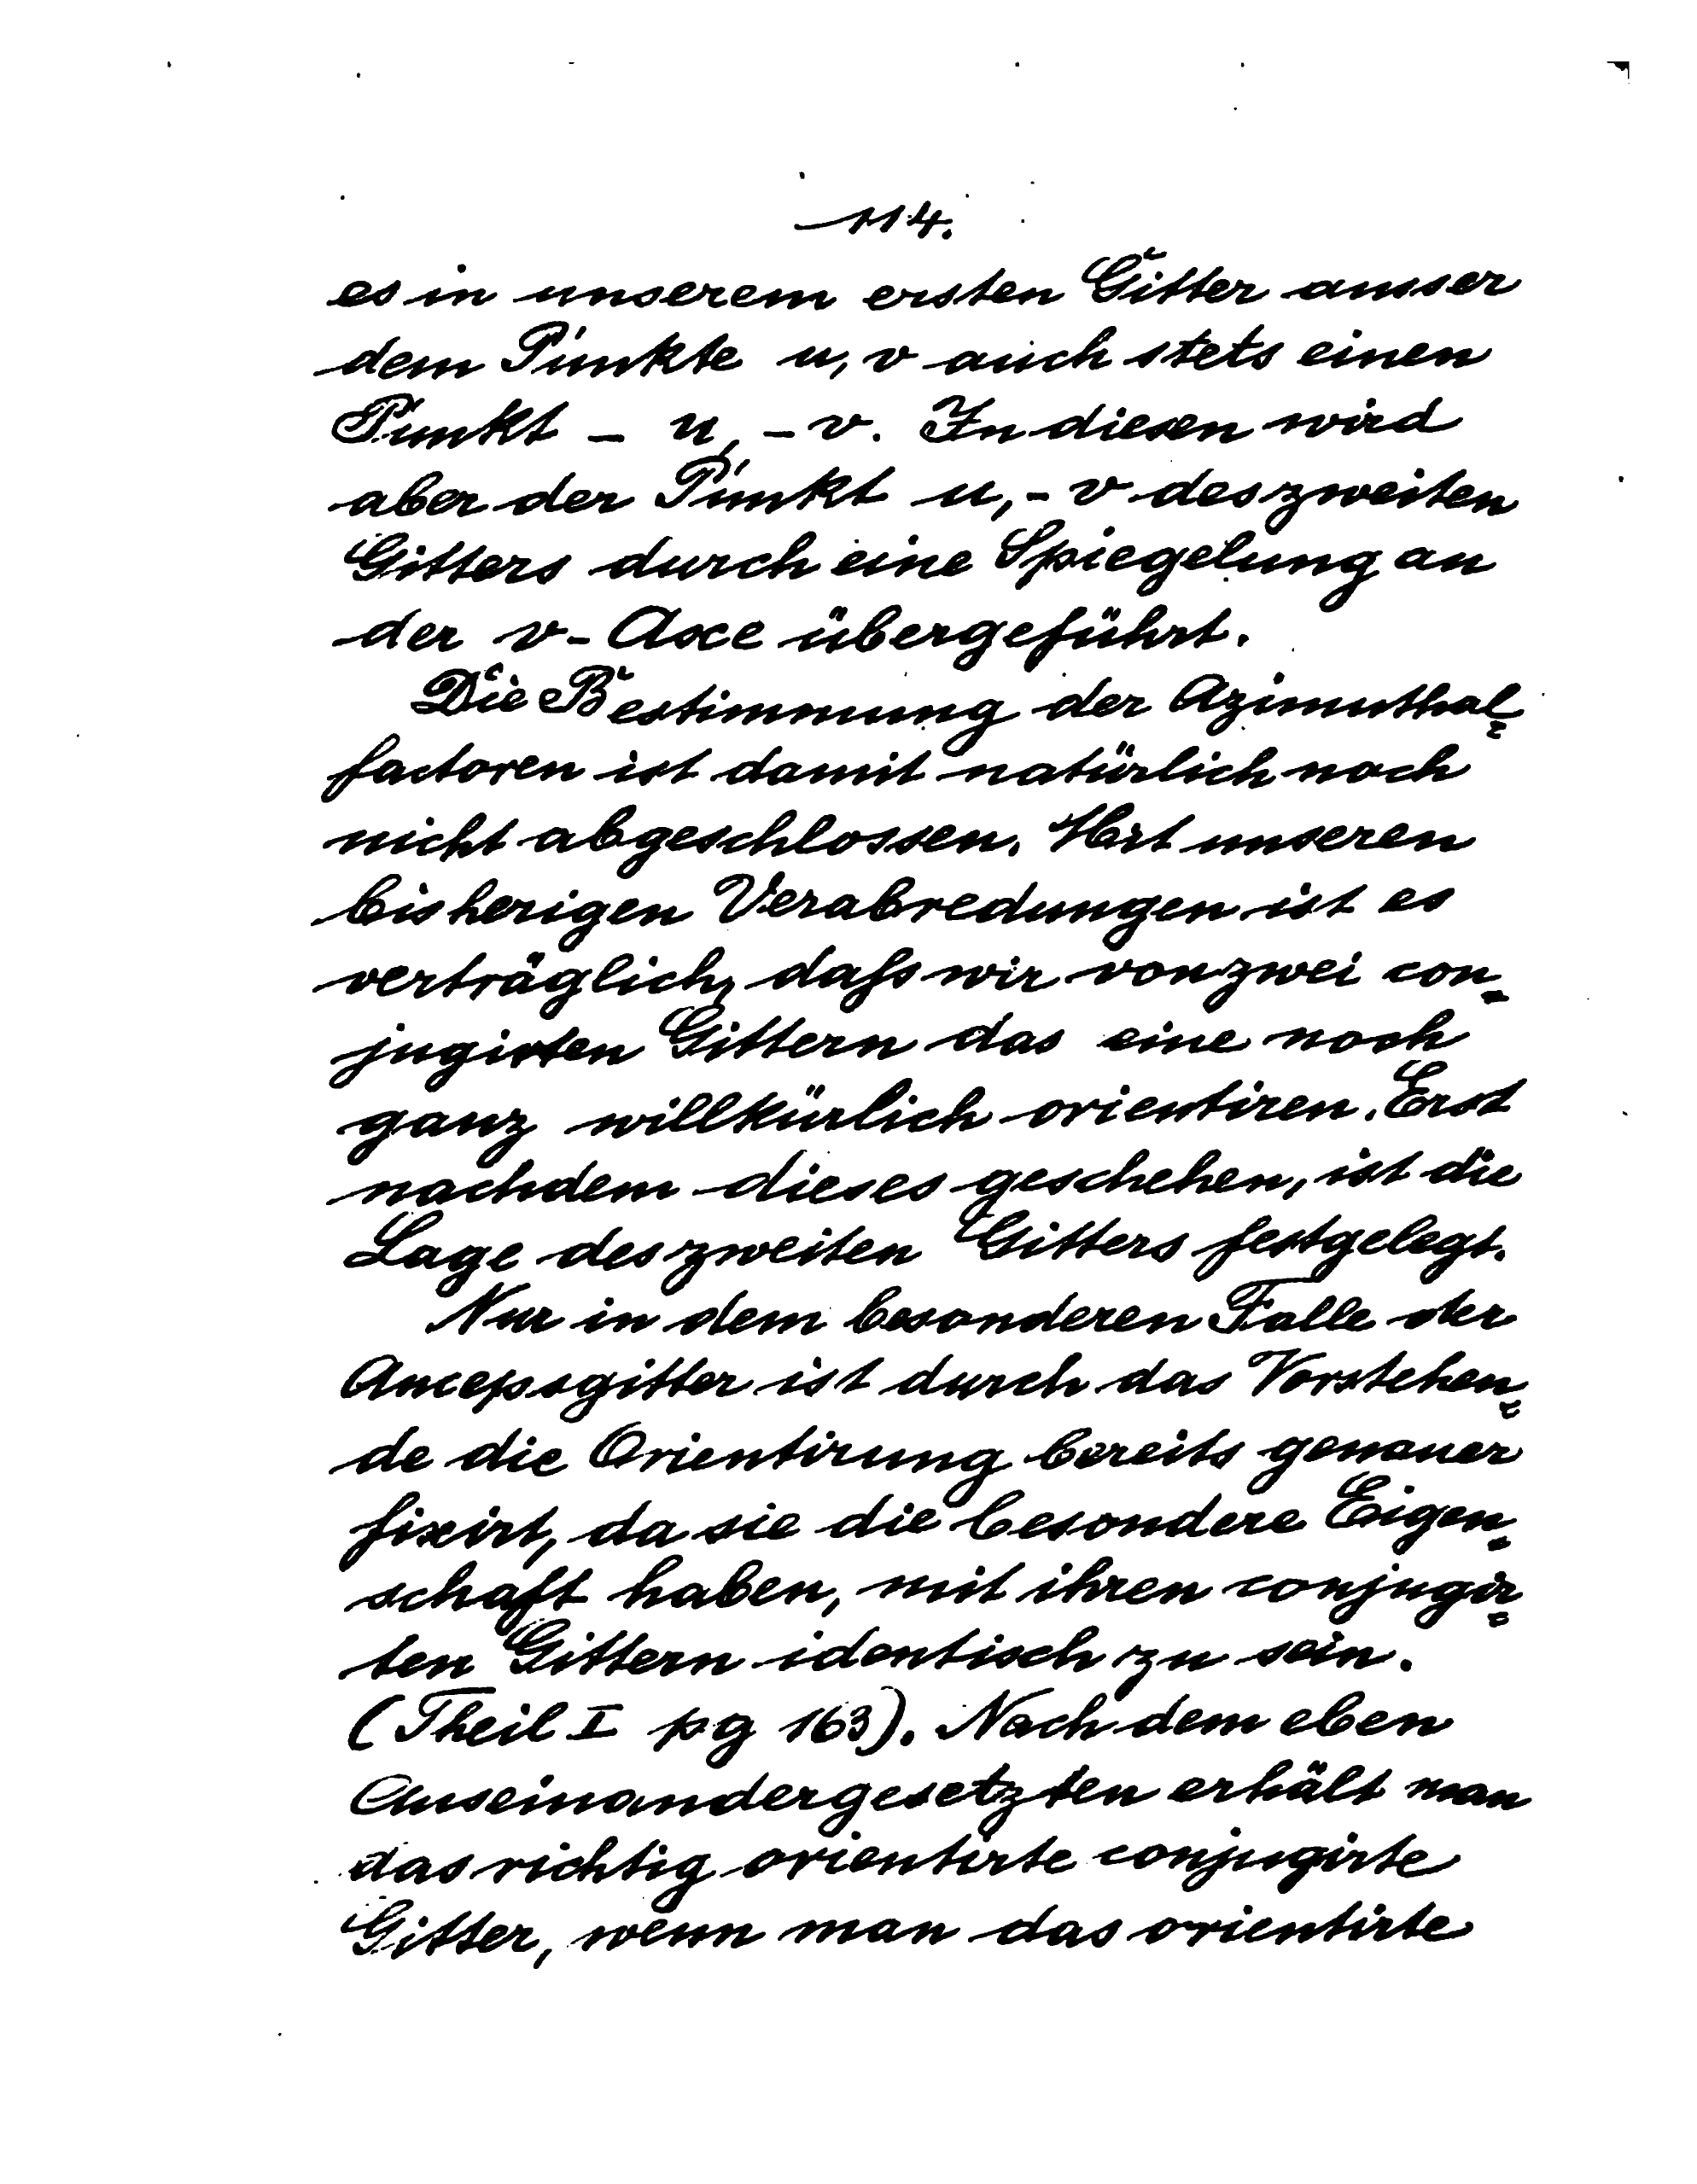 114.
es in unserem ersten Gitter ausser
dem Punkte u, v auch stets einen
Punkt - u, - v. In diesen wird
aber der Punkt u, - v des zweiten
Gitters durch eine Spiegelung an
der v-Axe übergeführt.
Die Bestimmung der Azimuthal-
factoren ist damit natürlich noch
nicht abgeschlossen. Mit unseren
bisherigen Verabredungen ist es
verträglich, dafs wir von zwei con-
jugirten Gittern das eine noch
ganz willkürlich orientiren. Erst
nachdem dieses geschehen, ist die
Lage des zweiten Gitters festgelegt.
Nur in dem besonderen Falle der
Ancepsgitter ist durch das Vorstehen-
de die Orientirung bereits genauer
fixirt, da sie die besondere Eigen-
schaft haben, mit ihren conjugir-
ten Gittern identisch zu sein.
(Theil I pg 163). Nach dem eben
Auseinandergesetzten erhält man
das richtig orientirte conjugirte
Gitter, wenn man das orientirte